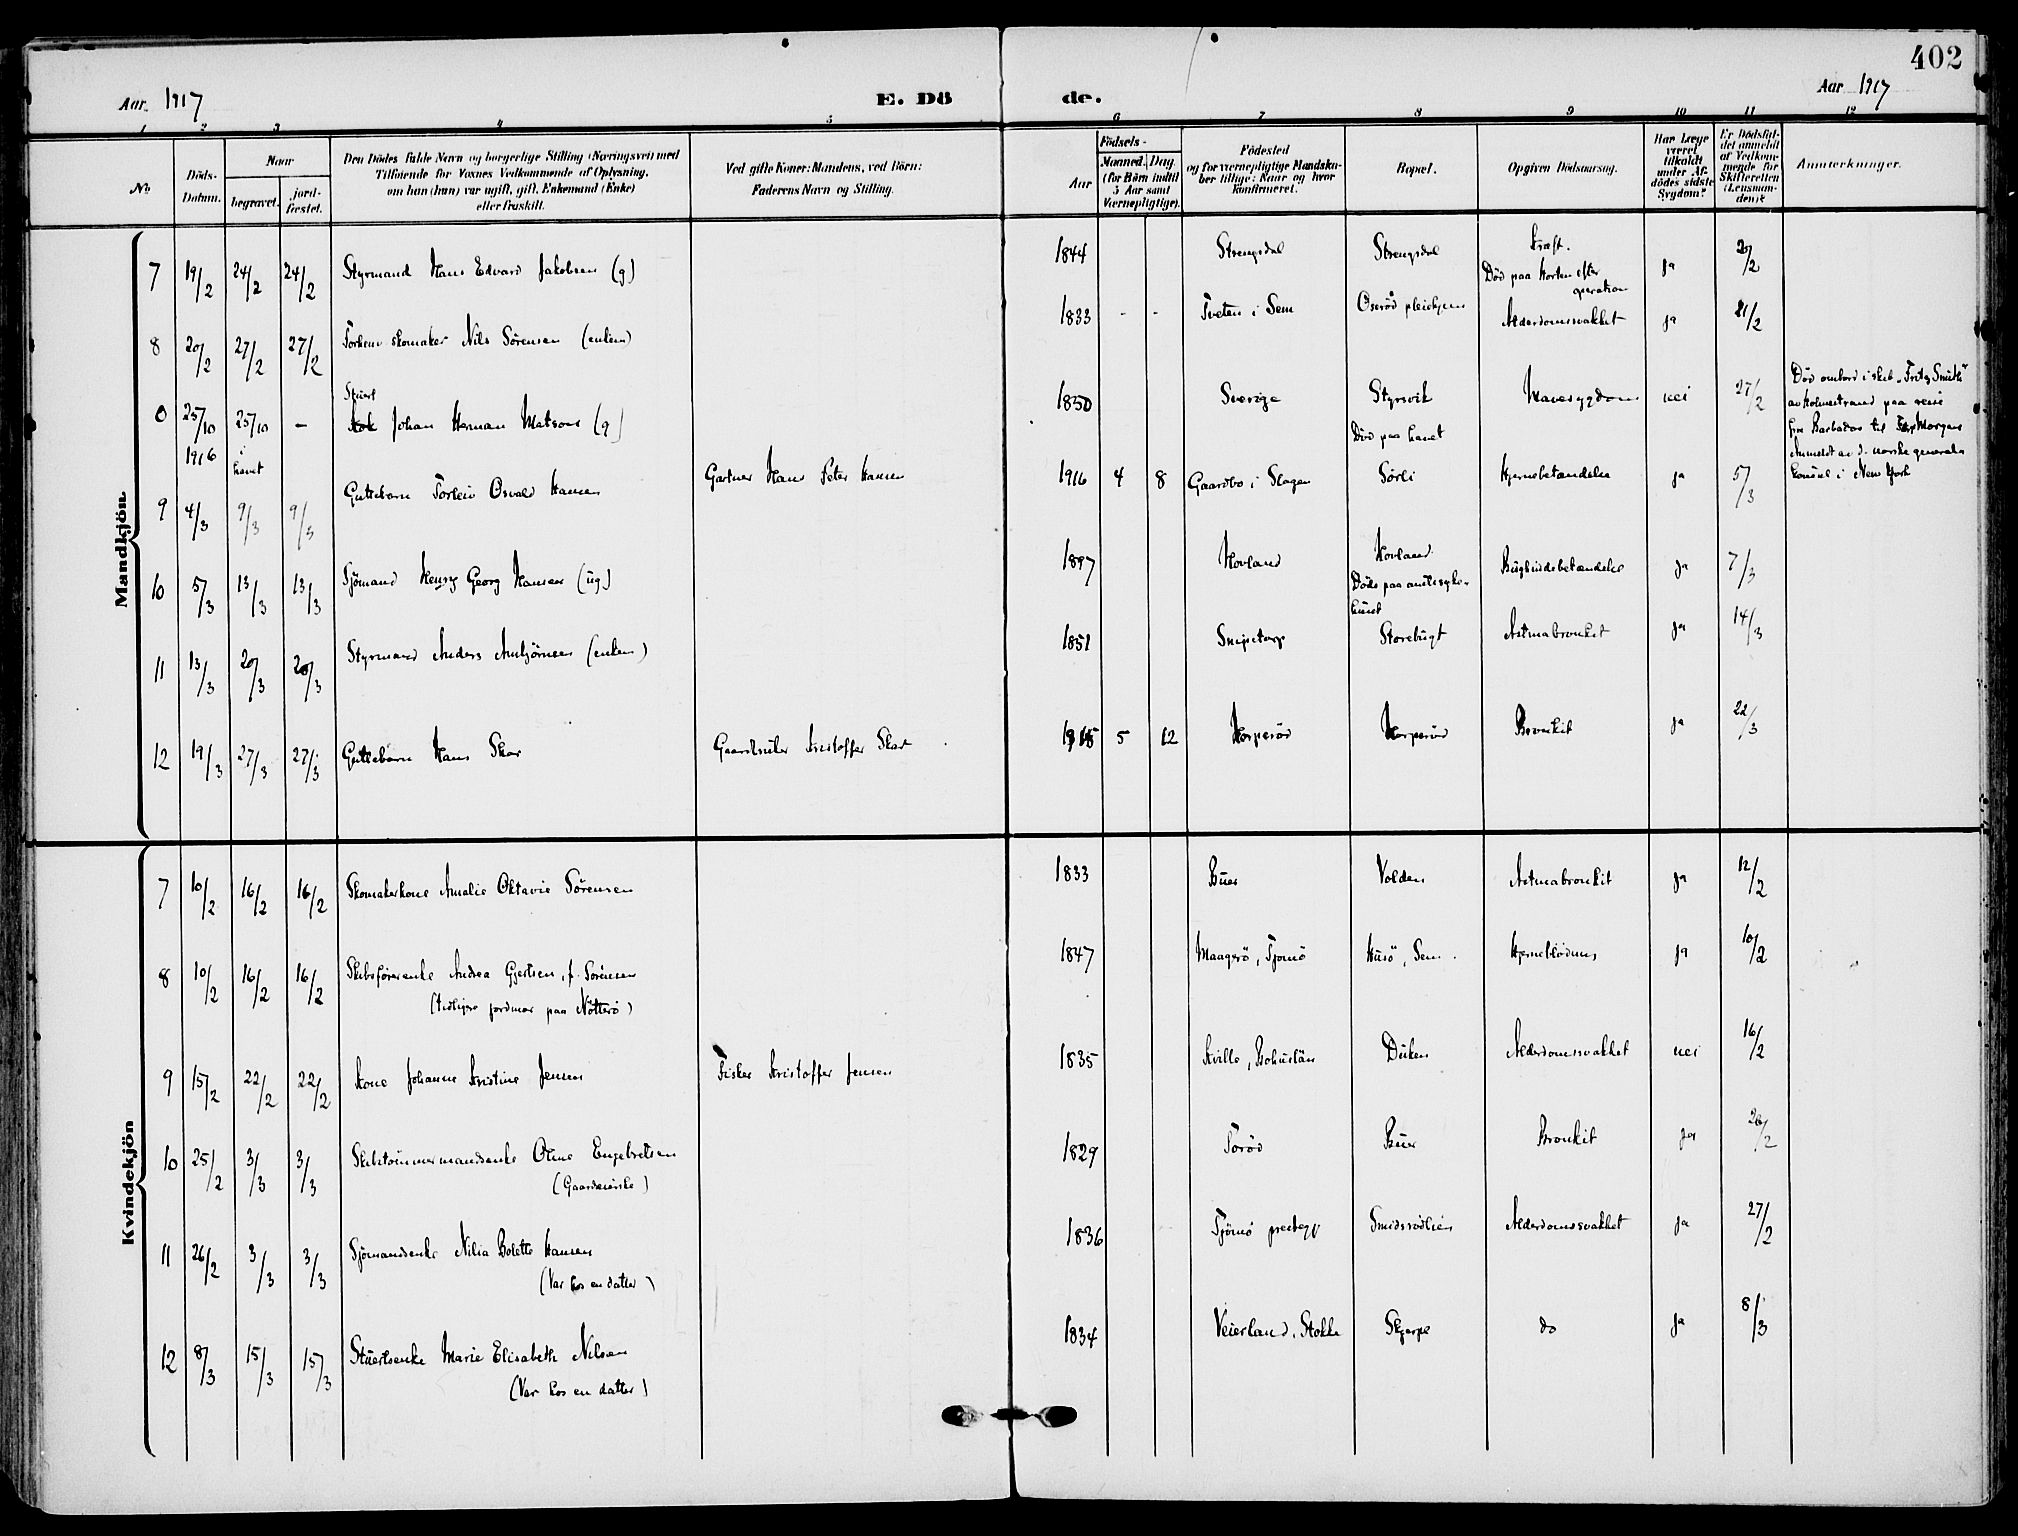 402
Aar 1917
E. Dö
de.
Aar 1917
1 2 3 4 5 6 7 8 9 10 11 12
No
Döds-
Datum.
Naar
begravet.
jord-
fæstet.
Den Dödes fulde Navn og borgerlige Stilling (Næringsvei) med
Tilföiende for Voxnes Vedkommende af Oplysning,
om han (hun) var ugift, gift, Enkemand (Enke)
eller fraskilt.
Ved gifte Koner: Mandens, ved Börn:
Faderens Navn og Stilling.
Födsels-
Aar
Maaned. Dag.
(for Börn indtil
5 Aar samt
Værnepligtige).
Födested
og for værnepligtige Mandska-
ber tillige: Naar og hvor
konfirmeret.
Bopæl.
Opgiven Dödsaarsag.
Har Læge
været
tilkaldt
under Af-
dödes sidste
Sygdom?
Er Dödsfal-
det anmeldt
af Vedkom-
mende for
Skifteretten
(Lensman-
den)?
Anmærkninger.
Mandkjön
7 19/2 24/2 24/2 Styrmand Hans Edvard Jakobsen (g) 1844 Strengsdal Strengsdal Kræft. ja 20/2
Död paa Horten efter
operation
8 20/2 27/2 27/2 Forhenv skomaker Nils Sörensen (enkem) 1833 - - Tveten i Sem Oseröd pleiehjem Alderdomssvakhet ja 21/2
Stuert
0 25/10 1916 25/10 i havet - Kok Johan Herman Matsons (g) 1850 Sverige Styrsvik Mavesygdom nei 27/2
Död paa havet
Död ombord i skib "Fritz Smith"
av Holmestrand paa reise
fra Barbados til Morgans
Anmeldt av d. norske general-
konsul i New York
9 4/3 9/3 9/3 Guttebarn Torleiv Osvald Hansen Gartner Hans Peter Hansen 1916 4 8 Gaardbo i Slagen Sörli Hjernebetændelse ja 5/3
10 5/3 13/3 13/3 Sjömand Henry Georg Hansen (ug) 1897 Hovland Hovland Bughindebetændelse ja 7/3
Döde paa amtssyke-
huset
11 13/3 20/3 20/3 Styrmand Anders Ambjörnsen (enkem) 1851 Snipetorp Storebugt Astmabronkit ja 14/3
12 19/3 27/3 27/3 Guttebarn Hans Skar Gaardbruker Kristoffer Skar 1915 5 12 Herperöd Herperöd Bronkit ja 22/3
Kvindekjön
7 10/2 16/2 16/2 Skomakerkone Amalie Oktavie Sörensen 1833 Buer Volden Astmabronkit ja 12/2
8 10/2 16/2 16/2 Skibsförerenke Andrea Gjertsen, f. Sörensen 1847 Maagerö, Tjömö Husö, Sem Hjerneblödning ja 10/2
(tidligere jordmor paa Nötterö)
9 15/2 22/2 22/2 Kone Johanne Kristine Jensen Fisker Kristoffer Jensen 1835 Kville, Bohuslän Duken Alderdomssvakhet nei 16/2
10 25/2 3/3 3/3 Skibstömmermandsenke Oline Engebretsen 1829 Toröd Buer Bronkit ja 26/2
(Gaardeierske)
11 26/2 3/3 3/3 Sjömandsenke Nilia Bolette Hansen 1836 Tjömö prestegj Smidsrödlien Alderdomssvakhet ja 27/2
(Var hos en datter)
12 8/3 15/3 15/3 Stuertsenke Marie Elisabeth Nilsen 1834 Veierland, Stokke Skjerpe do ja 8/3
(Var hos en datter)